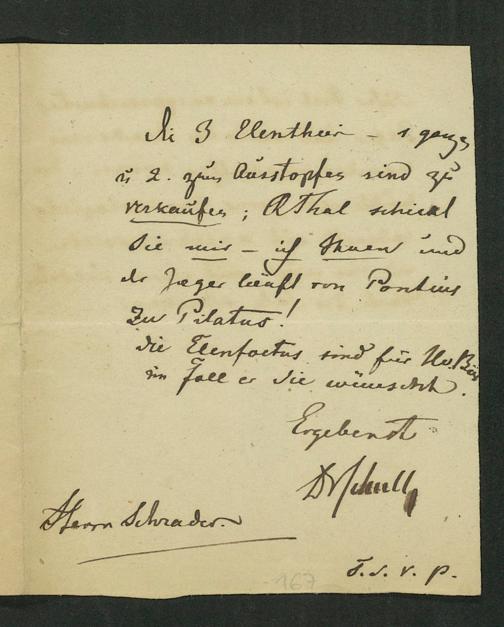 die 3 Elenthier – 1 ganzes
u 2. zum Ausstopfen sind zu
verkaufen; schickt
Sie mir – ich Ihnen und
der Jaeger läuft von Pontius
zu Pilatus!
die Elenfoetus sind für
im Fall er sie wünscht.
Ergebenst
Herrn Schrader.
T. S. V. P.
167